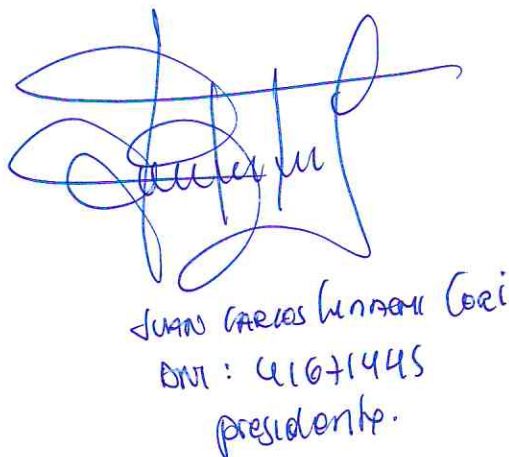 JUAN CARLOS CORI
DNI: 41671445
presidente.